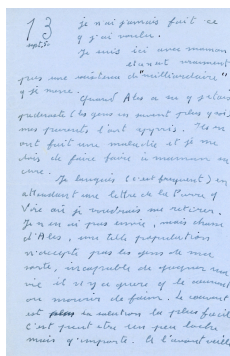 13 je n'ai jamais fait ce
sept. q. j'ai voulu.
Je suis ici avec maman
et vraiment
pas une existence de "milliardaire"
q. je mène.
Quand Ales a su q. j'étais
(les gens en savent plus q. moi)
mes parents l'ont appris. Ils en
ont fait une maladie et je me
dois de faire faire à maman une
cure.
Je languis (c'est fréquent) en
attendant une lettre de la
Vire où je voudrais me retirer.
Je n'en ai pas envie, mais chassé
d'Ales, une telle population
n'accepte pas les gens de ma
sorte, incapable de gagner ma
vie il n'y a guère q. le couvent
ou mourir de faim. Le couvent
est la solution la plus facile
c'est peut-être un peu lâche
mais q. importe. Et l'avant veille